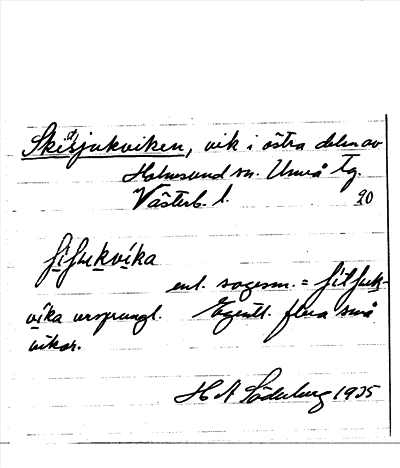 Skitsjukviken, vik i östra delen av
Holmsund sn. Umeå tg.
Västerb. l. 20
ʃiʃukvika
enl. sagesm. = ʃitʃuk-
vika ursprungl. Egentl. flera små
vikar.
H A Söderberg 1935